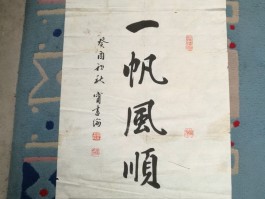 一帆風順
癸酉初秋